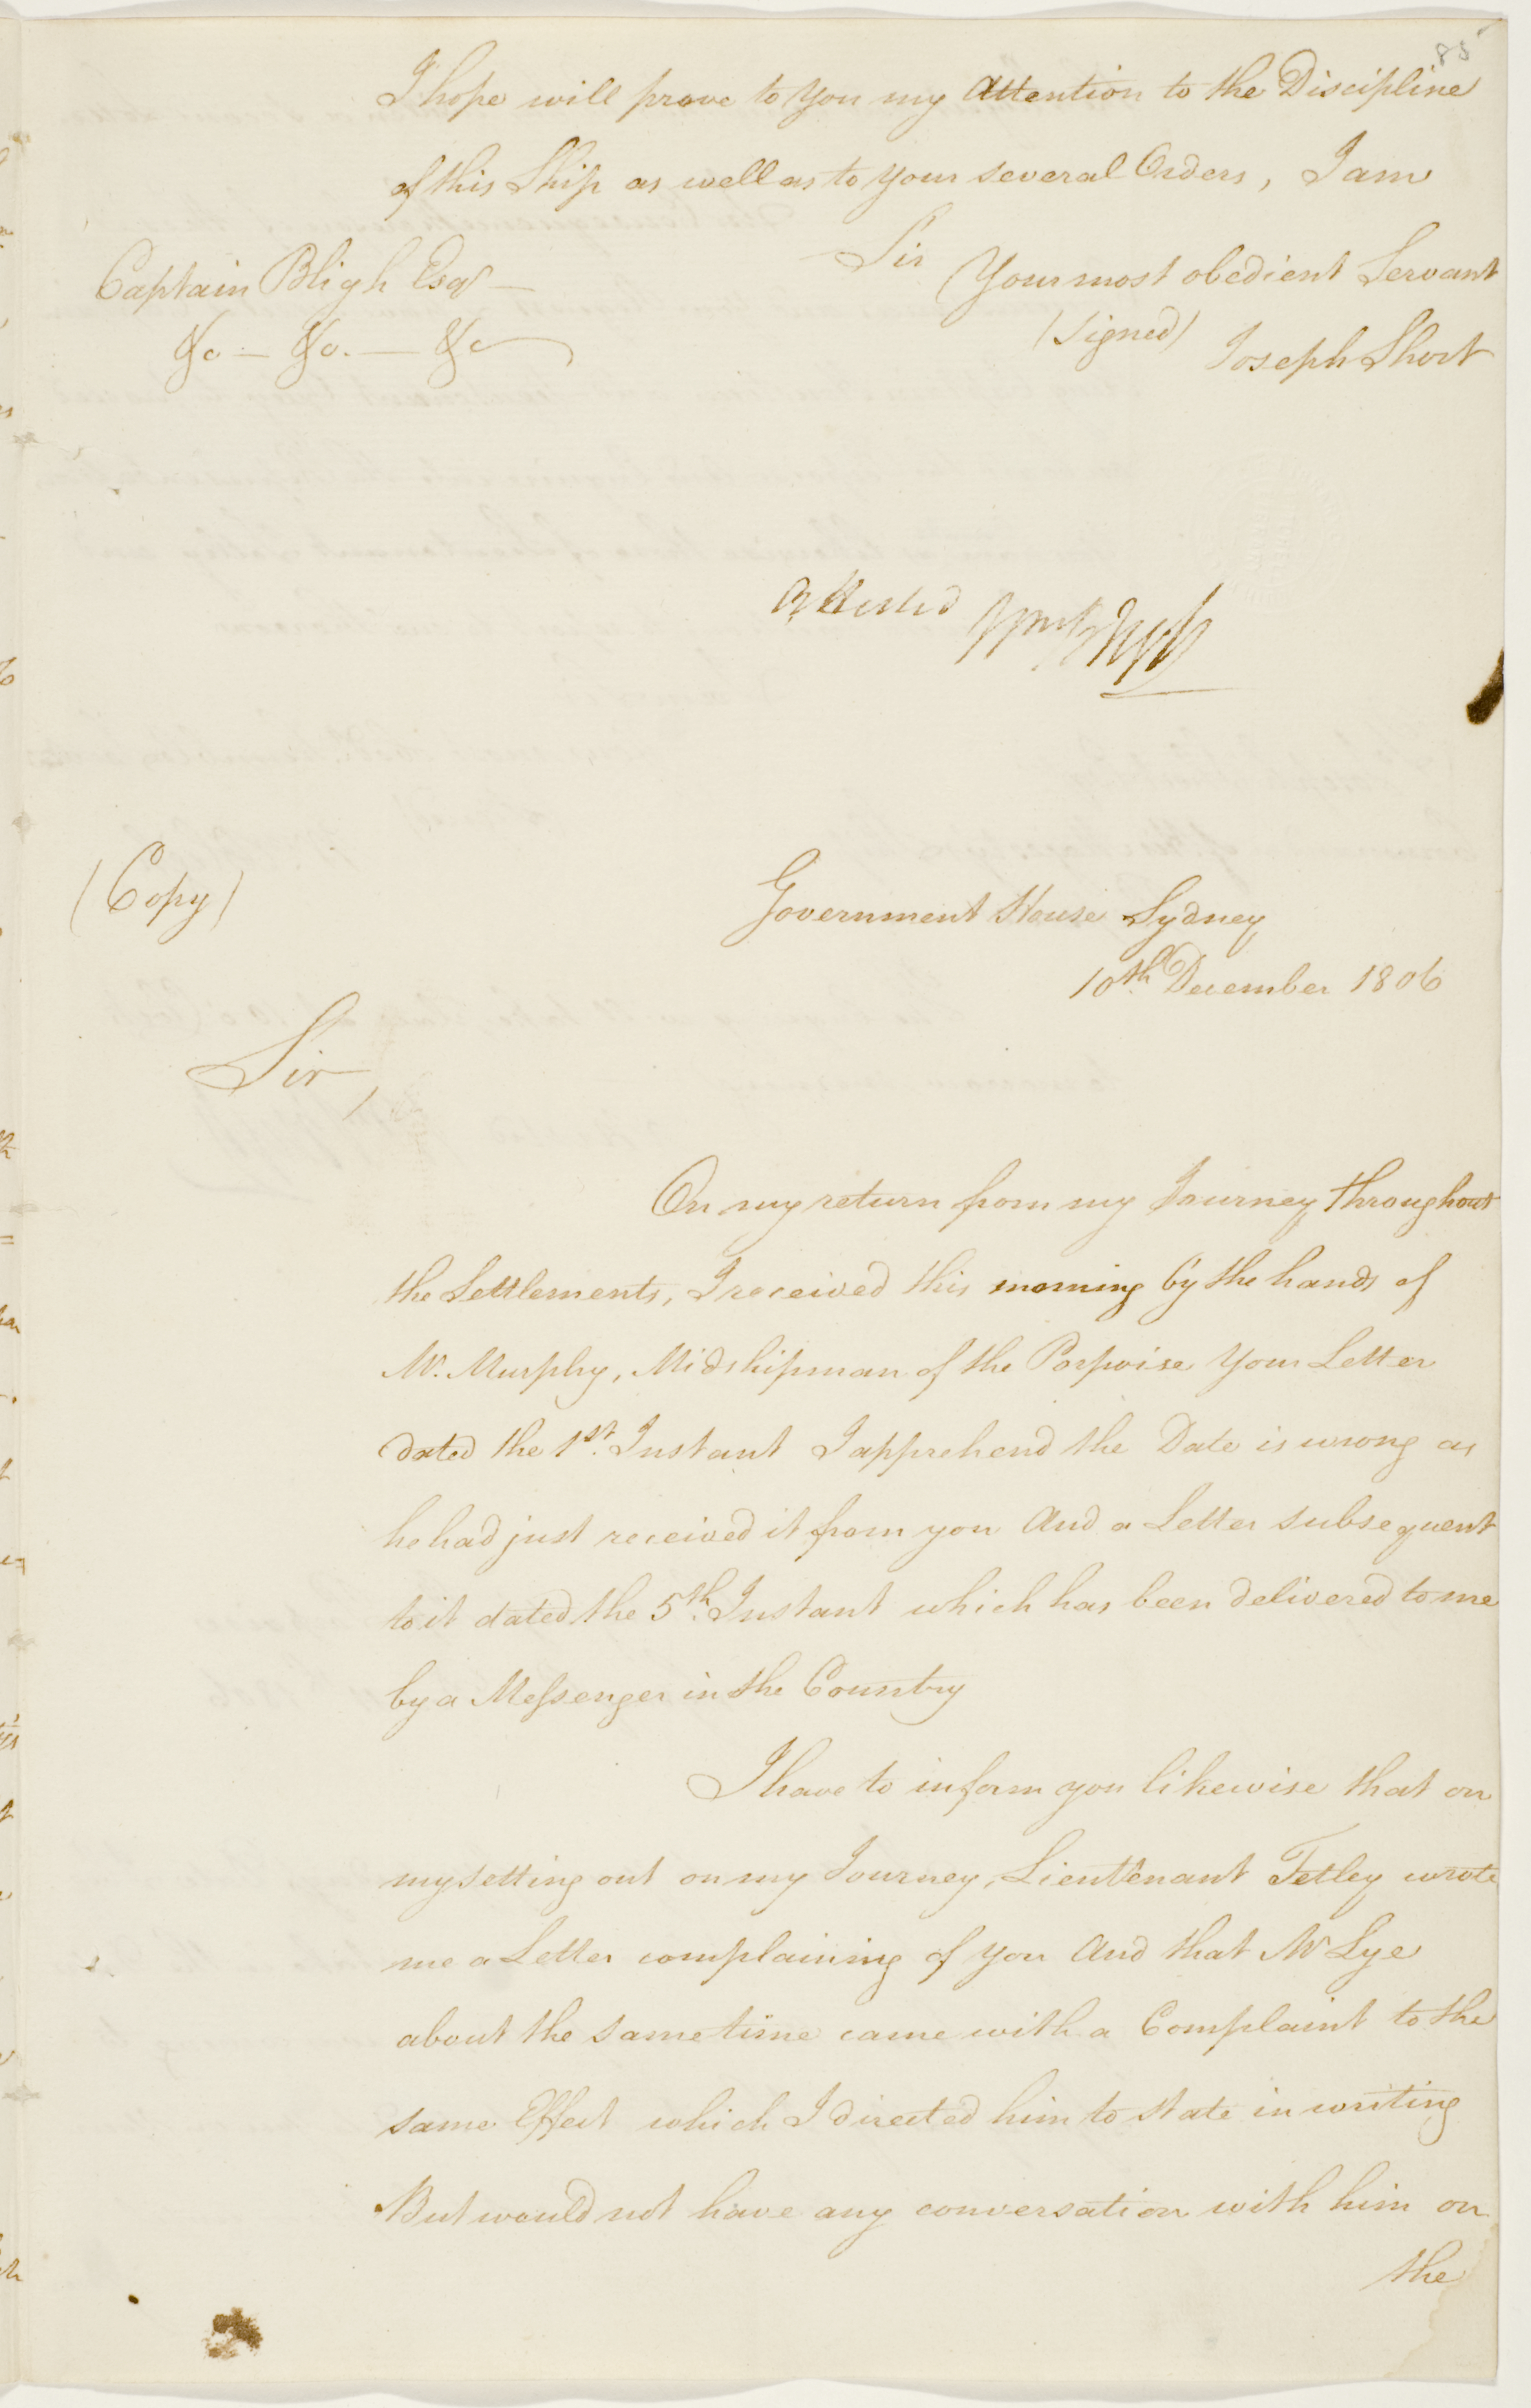 85
I hope will prove to you my Attention to the Discipline
of this Ship as well as to your several Orders, I am
Sir
Your most obedient Servant
(Signed) Joseph Short
Captain Bligh Esqr
&c. — &c. — &c
Attested Wm Bligh
(Copy)
Government House Sydney
10th December 1806
Sir,
On my return from my Journey throughout
the Settlements, I received this morning by the hands of
Mr. Murphy, Midshipman of the Porpoise your Letter
dated the 1st. Instant I apprehend the Date is wrong as
he had just received it from you And a Letter subsequent
to it dated the 5th. Instant which has been delivered to me
by a Messenger in the Country
I have to inform you likewise that on
my setting out on my Journey, Lieutenant Tetley wrote
me a Letter complaining of you And that Mr Lye
about the same time came with a Complaint to the
same Effect which I directed him to state in writing
But would not have any conversation with him on
the